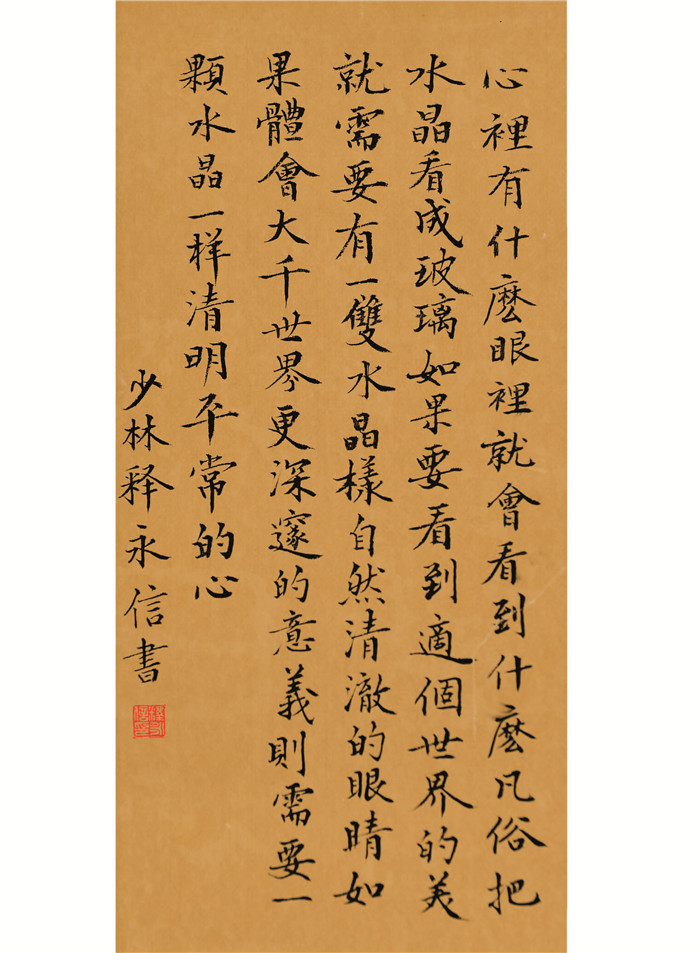 心裡有什麽眼裡就會看到什麽凡俗把
水晶看成玻璃如果要看到適個世界的美
就需要有一雙水晶樣自然清澈的眼睛如
果體會大千世界更深邃的意義則需要一
顆水晶一样清明平常的心
少林释永信書